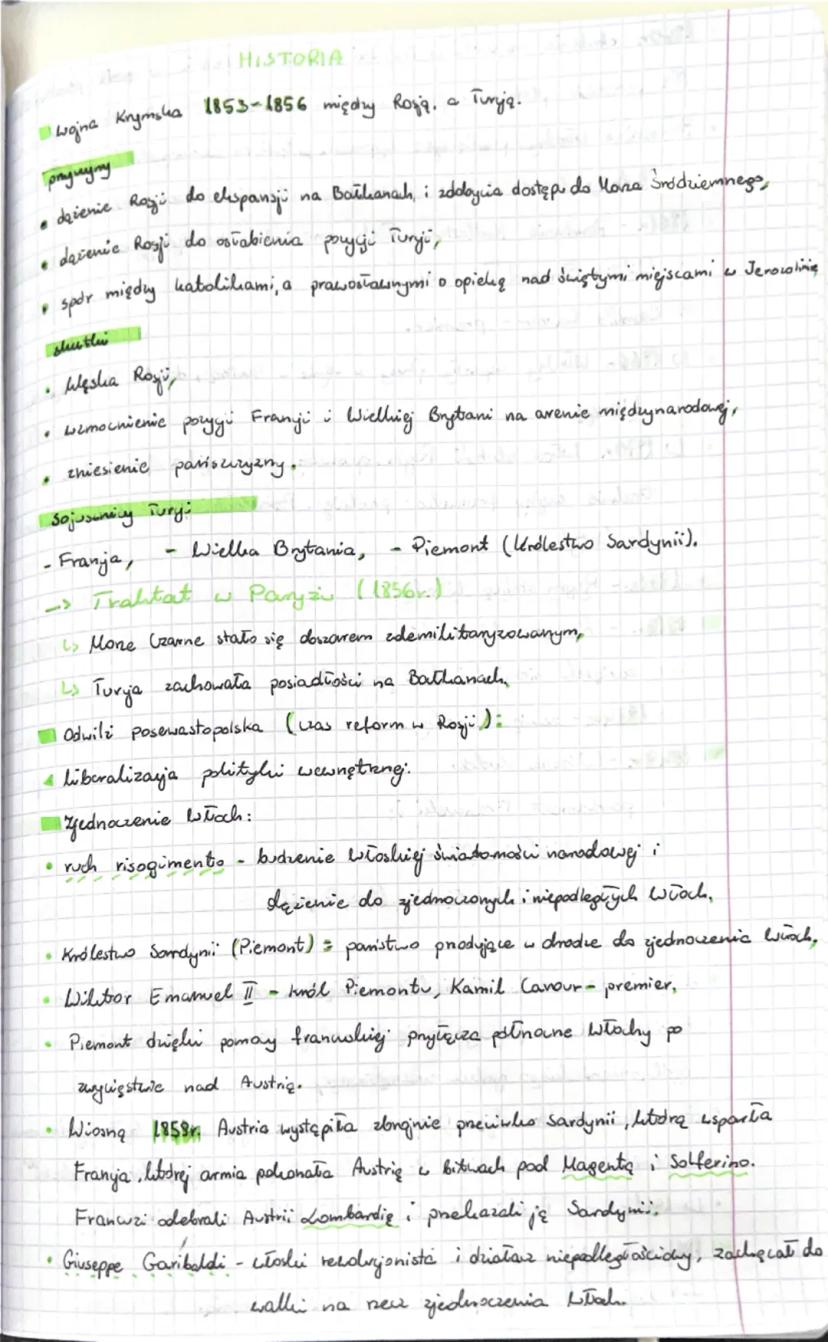 HISTORIA
Wojna Krymska 1853-1856 między Rosją, a Turcją.
przyczyny
• dążenie Rosji do ekspansji na Bałkanach, i zdobycia dostępu do Morza Śródziemnego,
• dążenie Rosji do osłabienia pozycji Turcji,
• spór między katolikami, a prawosławnymi o opiekę nad świętymi miejscami w Jerozolimie
skutki
• klęska Rosji,
• wzmocnienie pozycji Francji i Wielkiej Brytani na arenie międzynarodowej,
• zniesienie pańszczyzny.
Sojusznicy Turcji
- Francja, - Wielka Brytania, - Piemont (Królestwo Sardynii).
-> Traktat w Paryżu (1856r.)
↳ Morze Czarne stało się obszarem zdemilitaryzowanym,
↳ Turcja zachowała posiadłości na Bałkanach,
Odwilż posewastopolska (czas reform w Rosji):
liberalizacja polityki wewnętrznej.
Zjednoczenie Włoch:
• ruch risogimento - budzenie włoskiej świadomości narodowej i
dążenie do zjednoczonych i niepodległych Włoch,
• Królestwo Sardynii (Piemont) = państwo przodujące w drodze do zjednoczenia Włoch,
• Wiktor Emanuel II - król Piemontu, Kamil Cavour - premier,
• Piemont dzięki pomocy francuskiej przyłącza północne Włochy po
zwycięstwie nad Austrią.
• Wiosną 1858r. Austria wystąpiła zbrojnie przeciwko Sardynii, którą wsparła
Francja, której armia pokonała Austrię w bitwach pod Magentą i Solferino.
Francuzi odebrali Austrii Lombardię i przekazali ją Sardynii.
• Giuseppe Garibaldi - włoski rewolucjonista i działacz niepodległościowy, zachęcał do
walki na rzecz zjednoczenia Włoch.